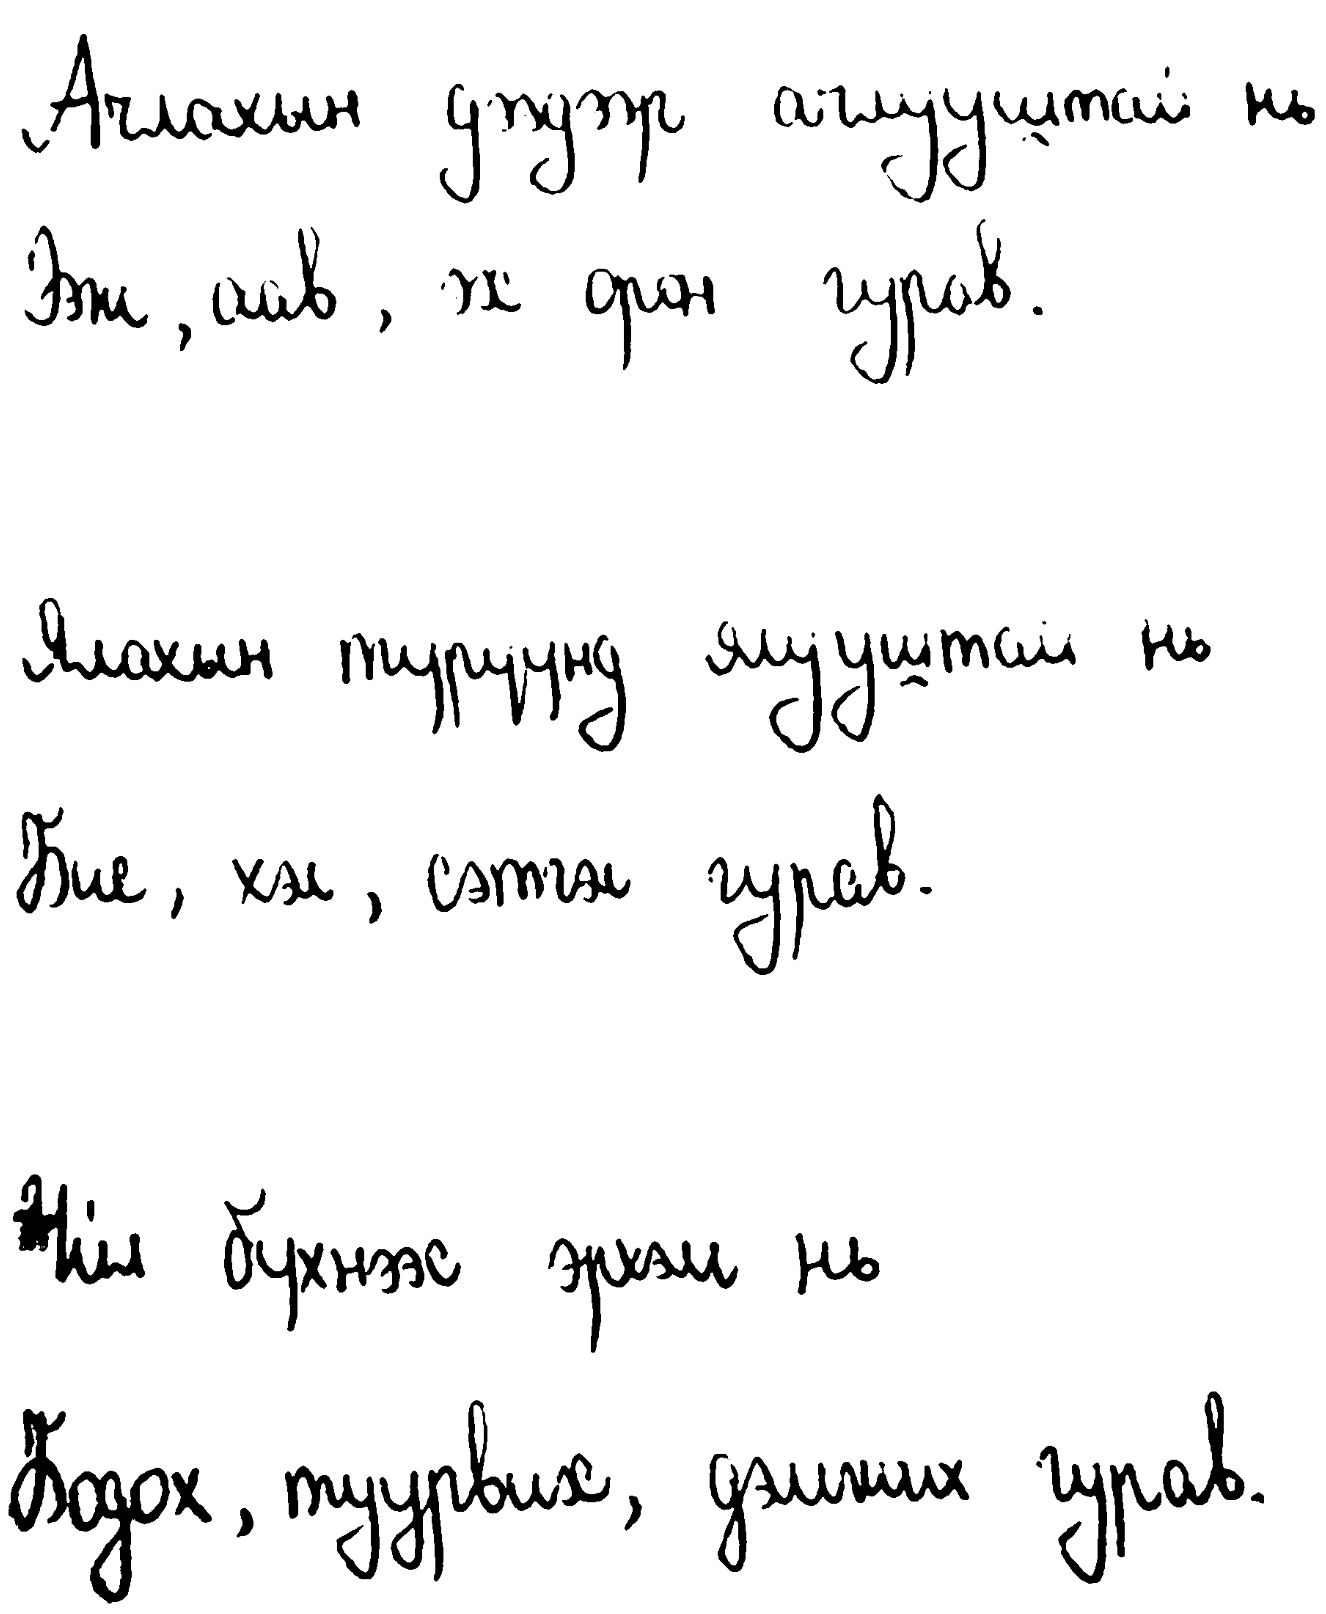 Ачлахын дээдээр ачлууштай нь
Ээж, аав, эх орон гурав.
Ялахын түрүүнд ялууштай нь
Бие, хэл, сэтгэл гурав.
Үйл бүхнээс эрхэм нь
Бодох, туурвих, дэмжих гурав.